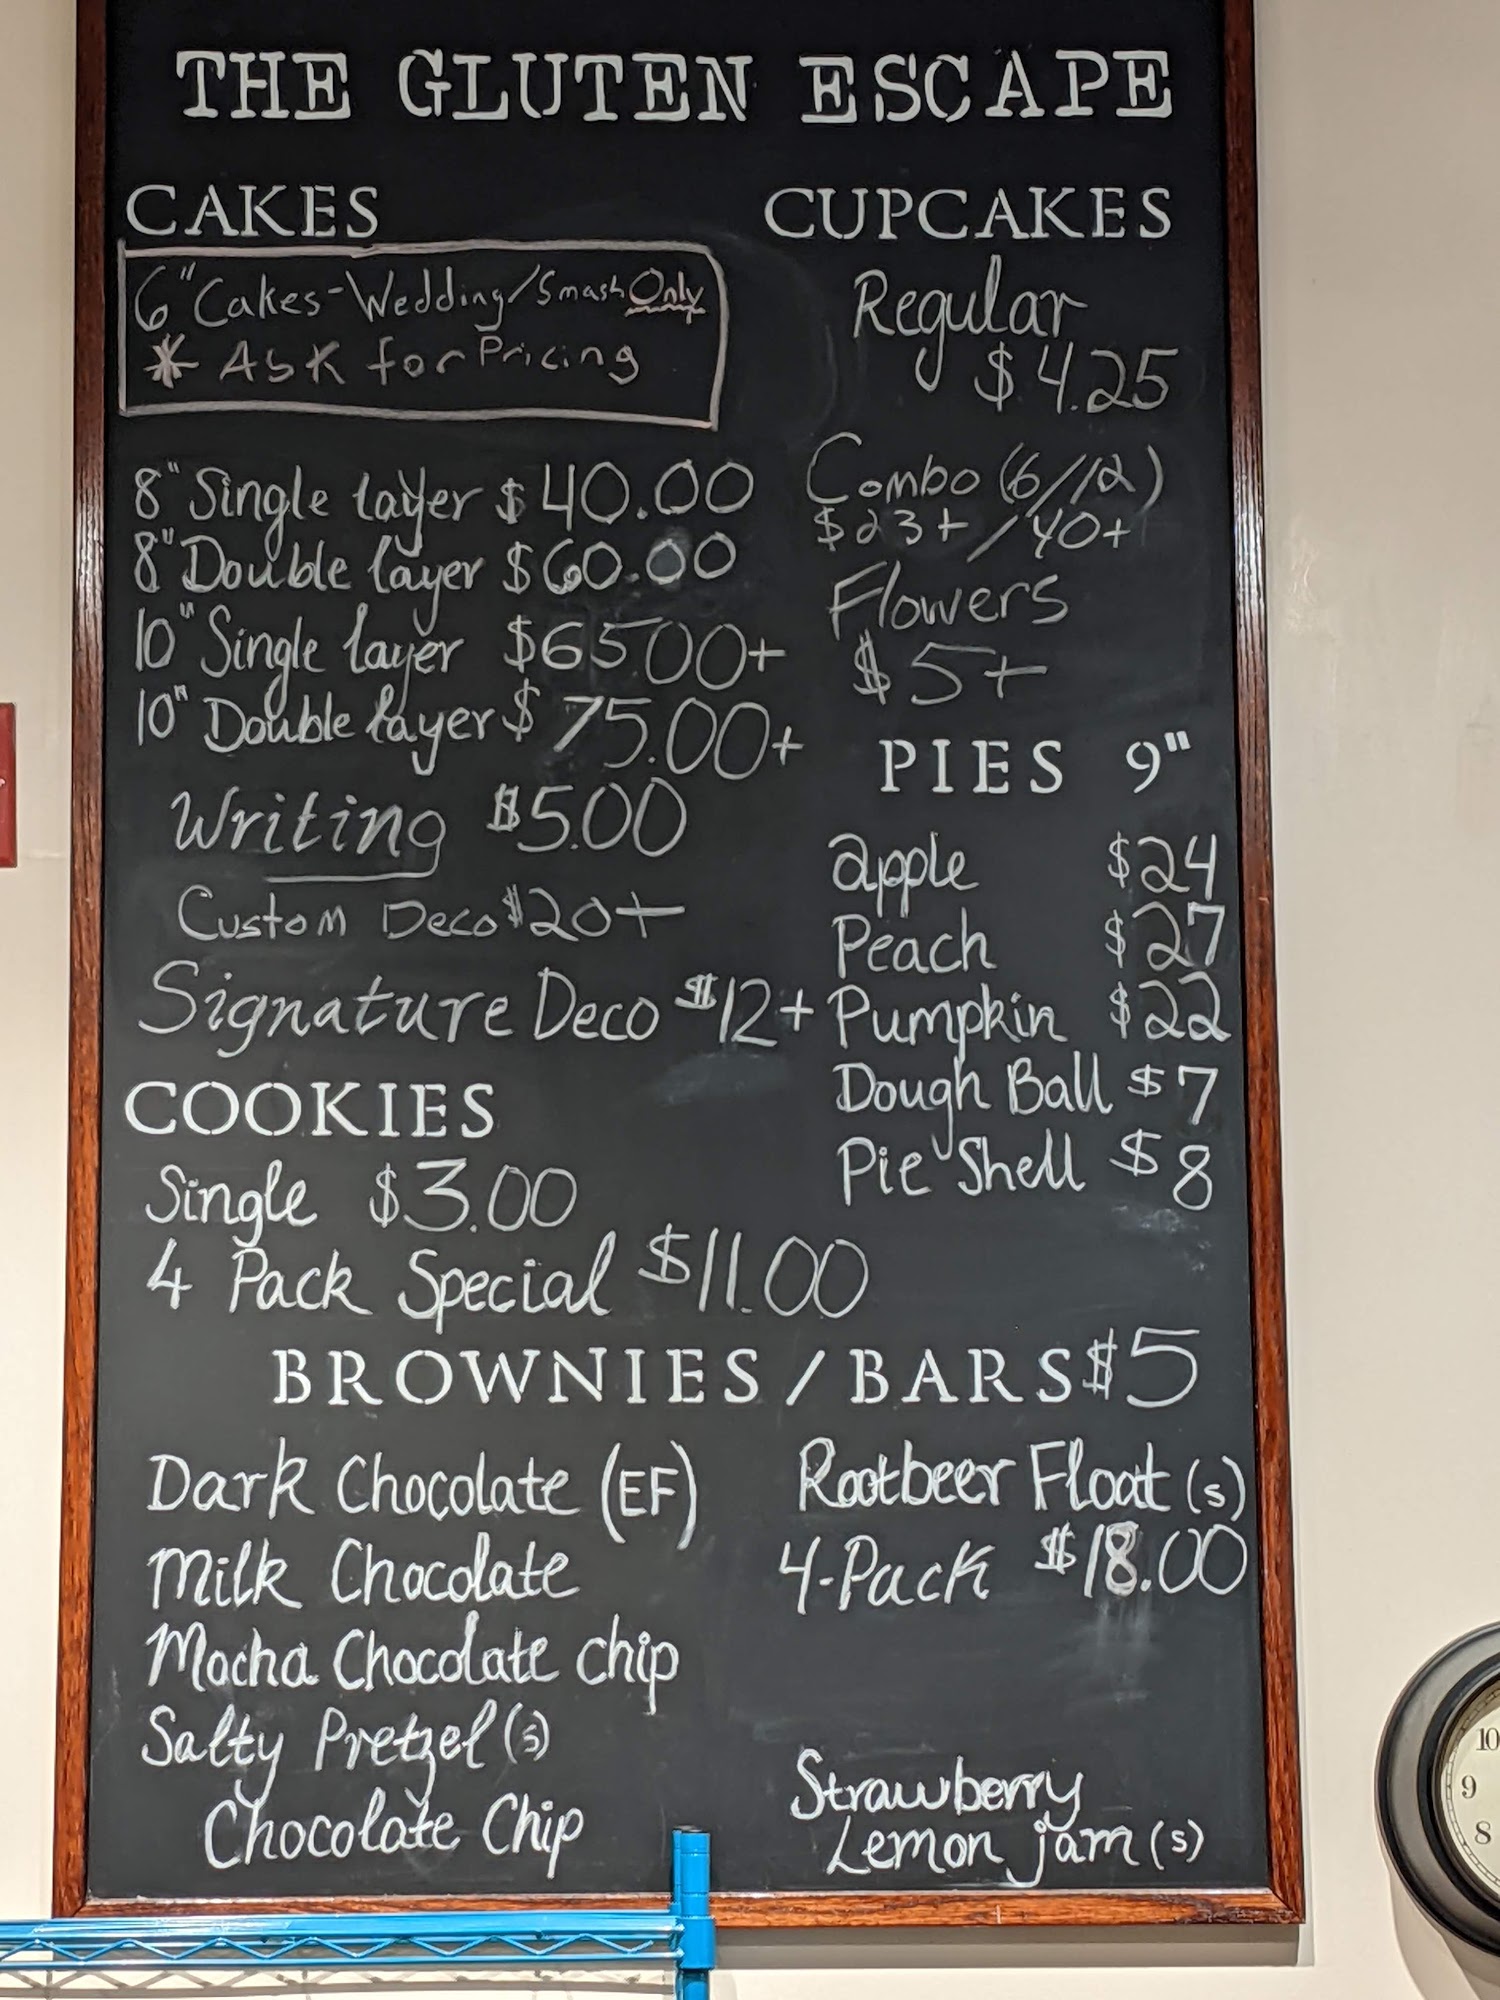 THE GLUTEN ESCAPE
CAKES
6" Cakes-Wedding/Smash Only
* Ask for Pricing
8" Single layer $40.00
8" Double layer $60.00
10" Single layer $65.00+
10" Double layer $75.00+
Writing $5.00
Custom Deco $20+
Signature Deco $12+
COOKIES
Single $3.00
4 Pack Special $11.00
CUPCAKES
Regular
$4.25
Combo (6/12)
$23+/40+
Flowers
$5+
PIES 9"
apple $24
Peach $27
Pumpkin $22
Dough Ball $7
Pie Shell $8
BROWNIES/BARS $5
Dark Chocolate (EF)
Milk Chocolate
Mocha Chocolate chip
Salty Pretzel (s)
Chocolate Chip
Rootbeer Float (s)
4-Pack $18.00
Strawberry
Lemon jam (s)
10
9
8